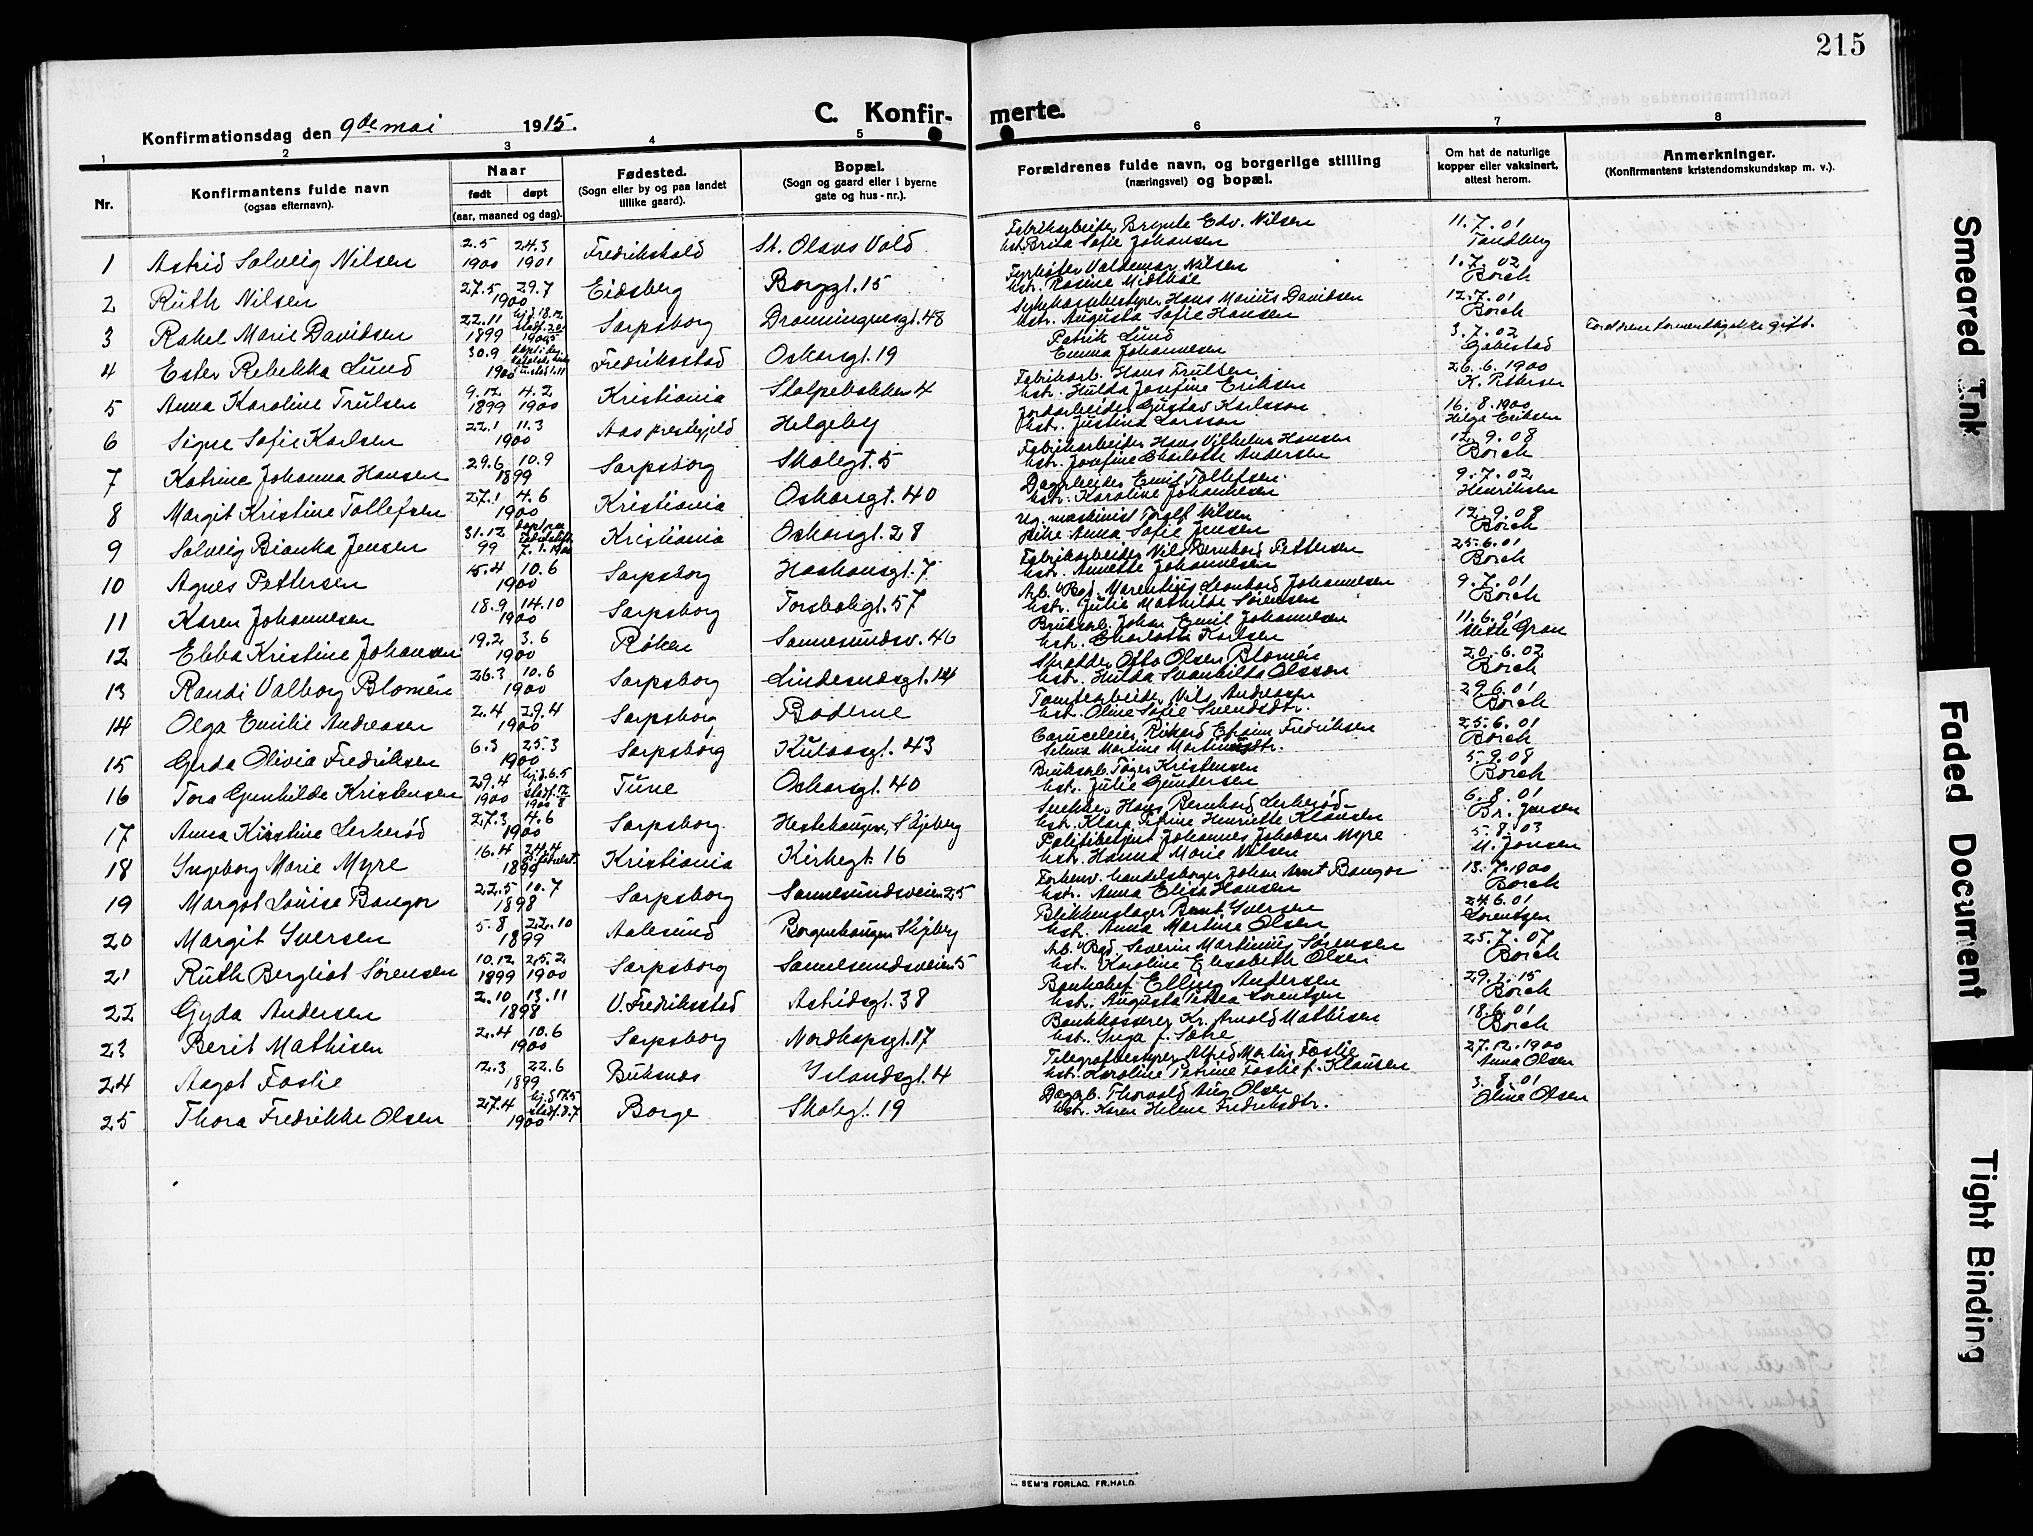 215
C. Konfir-
merte.
Konfirmationsdag den 9de mai 1915.
1 2 3 4 5 6 7 8
Nr.
Konfirmantens fulde navn
(ogsaa efternavn).
Naar
født døpt
(aar, maaned og dag).
Fødested.
(Sogn eller by og paa landet
tillike gaard).
Bopæl.
(Sogn og gaard eller i byerne
gate og hus-nr.).
Forældrenes fulde navn, og borgerlige stilling
(næringsvei) og bopæl.
Om hat de naturlige
kopper eller vaksinert,
attest herom.
Anmerkninger.
(Konfirmantens kristendomskundskap m. v.).
1 Astrid Solveig Nilsen 2.5 1900 24.3 1901 Fredrikshald St. Olavs Vold Fabrikarbeider Brynte Edv. Nilsen
hstr. Brita Sofie Johansen 11.7.01 Tandberg
2 Ruth Nilsen 27.5 29.7 1900 Eidsberg Borggt. 15 Fyrbøter Valdemar Nilsen
hstr. Rosine 1.7.02 Borch
3 Rakel Marie Davidsen 22.11 1899 Sarpsborg Dronningensgt. 48 Sykekassebestyrer Hans Marius Davidsen
hstr. Augusta Sofie Hansen 12.7.01 Borch gift.
4 Ester Rebekka Lund 30.9 1900 Fredriksstad Oskarsgt. 19 Patrik Lund
Emma Johannesen 3.7.02
5 Anna Karoline Trulsen 9.12 1899 4.2 1900 Kristiania Stolpebakken 4 Fabrikarb. Hans Trulsen
hstr. Hulda Josefine Eriksen 26.6.1900 K. Pettersen
6 Signe Sofie Karlsen 22.1 11.3 1900 Aas prestegjeld Helgeby Jordarbeider Gustav Karlsson
hstr. Justina Larsson 16.8.1900 Helga Eriksen
7 Katrine Johanna Hansen 29.6 10.9 1899 Sarpsborg Skolegt. 5 Fabrikarbeider Hans Vilhelm Hansen
hstr. Josefine Charlotte Andersen 12.9.08 Borch
8 Margit Kristine Tollefsen 27.1 4.6 1900 Kristiania Oskarsgt. 40 Dagarbeider Emil Tollefsen
hstr. Karoline Johannesen 9.7.02 Henriksen
9 Solveig Bianka Jensen 31.12 99 7.1.1900 Kristiania Oskarsgt. 28 Ug. maskinist Torolf Nilsen
Pike Anna Sofie Jensen 12.9.08 Borch
10 Agnes Pettersen 15.4 10.6 1900 Sarpsborg Haakonsgt. 7 Fabrikarbeider Nils Bernhard Pettersen
hstr. Annette Johannesen 25.6.01 Borch
11 Karen Johannesen 18.9 14.10 1900 Sarpsborg Torsbakgt. 57 Arb. v/Bad. Marentius Leonhard Johannesen
hstr. Julie Mathilde Sørensen 9.7.01 Borch
12 Ebba Kristine Johansen 19.2 3.6 1900 Røken Sannesundsv. 46 Bruksarb. Johan Emil Johannesen
hstr. Charlotte Karlsen 11.6.01 Gran
13 Randi Valborg Blomén 26.3 10.6 1900 Sarpsborg Lindesnæsgt. 14 Skrædder Otto Olsen Blomén
hstr. Hulda Svanhilda Olsson 20.6.02 Borch
14 Olga Emilie Andreasen 2.4 29.4 1900 Sarpsborg Baderne Tomtearbeider Nils Andreasen
hstr. Oline Sofie Svendsdtr. 29.6.01 Borch
15 Gerda Olivia Fredriksen 6.3 25.3 1900 Sarpsborg Kulaasgt. 43 Rikard Efraim Fredriksen
Selma Martine Martinusdtr. 25.6.01 Borch
16 Tora Gunhilde Kristensen 29.4 1900 hj.d. 6.5 stadf. 12 1900 8 Tune Oskarsgt. 40 Bruksarb. Tøger Kristensen
hstr. Julie Gundersen 5.9.08 Borch
17 Anna Kirstine Lerkerød 27.3 4.6 1900 Sarpsborg Hestehaugen, Skjeberg Snekker Hans Bernhard Lerkerød
hstr. Klara Petrine Henriette Klausen 6.8.01 Br. Jensen
18 Ingeborg Marie Myre 16.4 24.4 1899 Kristiania Kirkegt. 16 Politibetjent Johannes Jakobsen Myre
hstr. Hanna Marie Nilsen 5.8.03 M. Jensen
19 Margot Louise Bangor 22.5 10.7 1898 Sarpsborg Sannesundsveien 25 Forhenv. handelsborger Johan Arnt Bangor
hstr. Anna Elisa Hansen 13.7.1900 Borch
20 Margit Iversen 5.8 22.10 1899 Aalesund Borgenhaugen Skjeberg Blikkenslager Bernt Iversen
hstr. Anna Martine Olsen 24.6.01 Lorentzen
21 Ruth Bergliot Sørensen 10.12 1899 25.2 1900 Sarpsborg Sannesundsveien 5 Arb. v/Bad. Severin Martinius Sørensen
hstr. Karoline Elisabeth Olsen 25.7.07 Borch
22 Gyda Andersen 2.10 13.11 1898 V. Fredriksstad Astridsgt. 38 Bankchef Elling Andersen
hstr. Augusta Petrea Lorentzen 29.7.15 Borch
23 Berit Mathisen 2.4 10.6 1900 Sarpsborg Nordkapsgt. 17 Bankkasserer Kr. Arnold Mathisen
hstr. Inga f. Sætre 18.6.01 Borch
24 Aagot Foslie 2.3 22.6 1899 Buksnes Islandsgt. 4 Telegrafbestyrer Alfred Martin Foslie
hstr. Karoline Petrine Foslie f. Klausen 27.12.1900 Anna Olsen
25 Thora Fredrikke Olsen 27.4 hj.d 17.5 stadf. 8.7 1900 Borge Skolegt. 19 Dagarb. Thorvald Aug Olsen
hstr. Karen Helene Fredriksdtr. 3.8.01 Oline Olsen
SEM'S FORLAG. FR.HALD.
Smeared Ink
Faded Document
Tight Binding